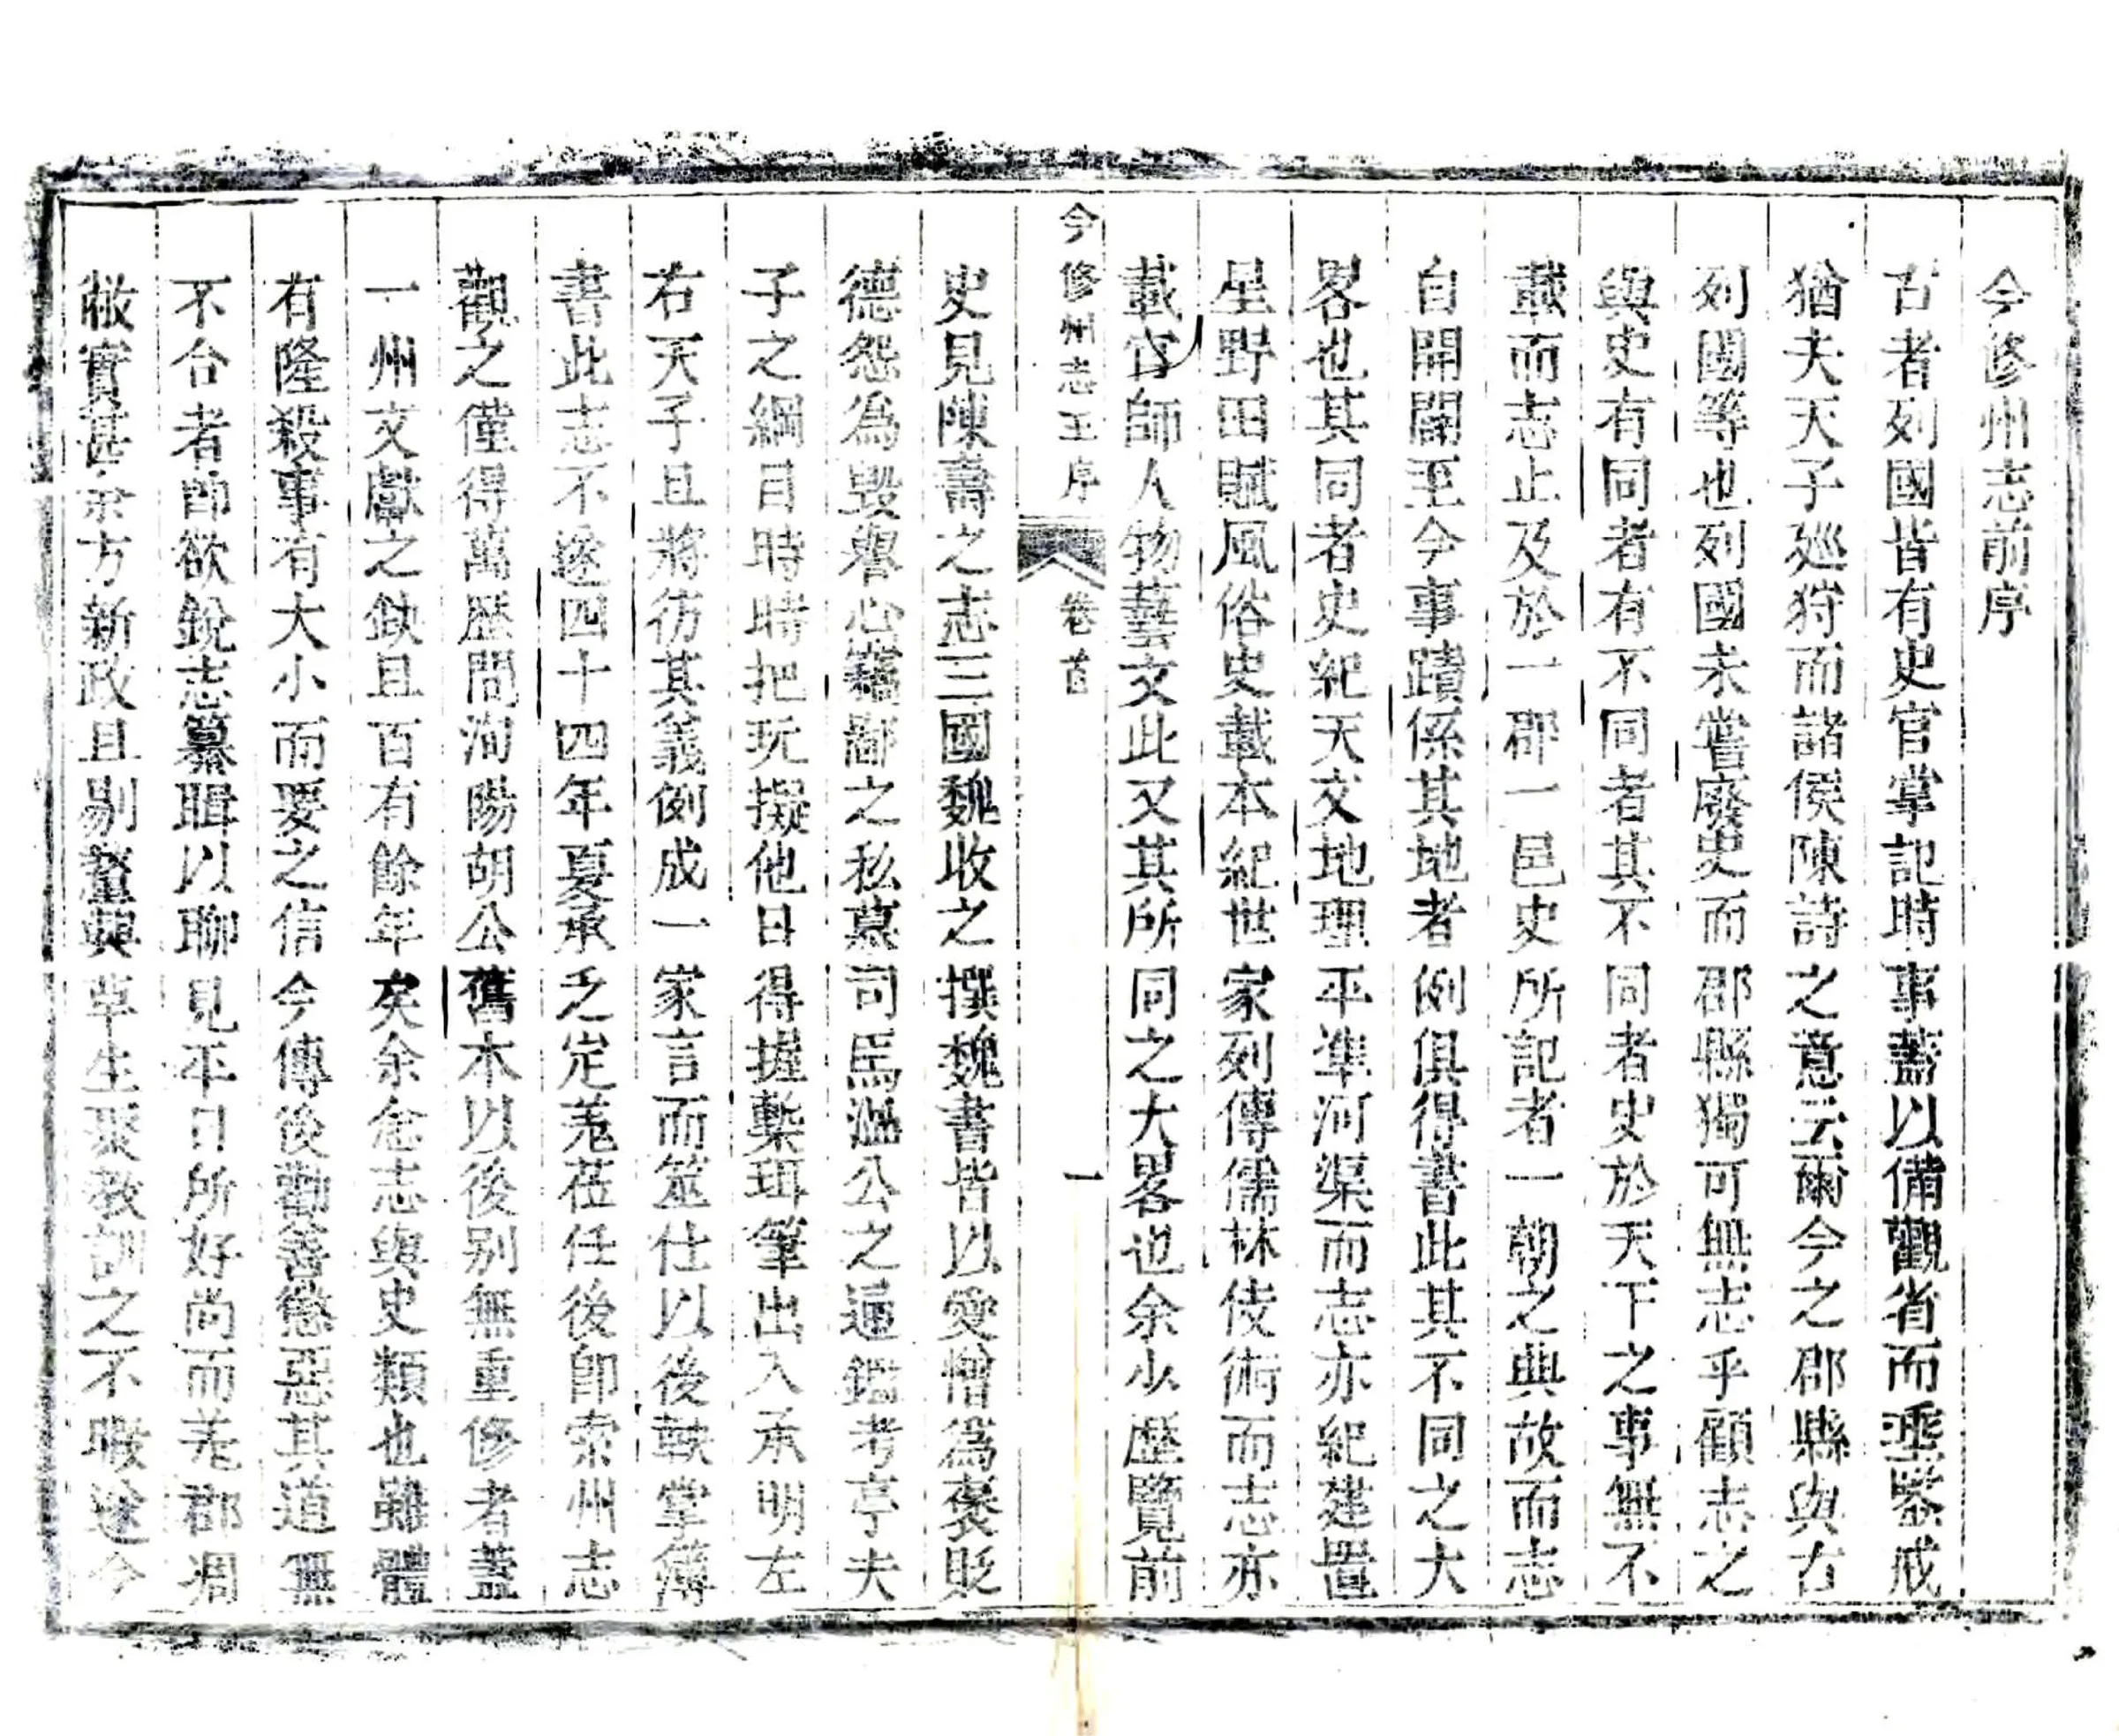 今修州志前序
古者列國皆有史官掌記時事蓋以備觀省而垂鑒戒
猶夫天子廵狩而諸侯陳詩之意云爾今之郡縣與古
列國等也列國未嘗廢史而郡縣獨可無志乎顧志之
與史有同者有不同者其不同者史於天下之事無不
載而志止及於一郡一邑史所記者一朝之典故而志
自開闢至今事蹟係其地者例俱得書此其不同之大
畧也其同者史紀天文地理平準河渠而志亦紀建置
星野田賦風俗史載本紀世家列傳儒林伎術而志亦
載官師人物藝文此又其所同之大畧也余少歷覽前
今修州志王序 卷首 一
史見陳壽之志三國魏收之撰魏書皆以愛憎為褒貶
德怨為毀譽心竊鄙之私慕司馬溫公之通鑑考亭夫
子之綱目時時把玩擬他日得握槧珥筆出入承明左
右天子且將彷其義例成一家言而筮仕以後執掌簿
書此志不遂四十四年夏承乏定羗莅任後即索州志
觀之僅得萬歷間洵陽胡公舊本以後別無重修者蓋
一州文獻之缺且百有餘年矣余念志與史類也雖體
有隆殺事有大小而要之信今傳後勸善懲惡其道無
不合者即欲銳志纂輯以聊見平日所好尚而羗郡凋
敝實甚余方新政且剔釐與草生聚教訓之不暇遂今